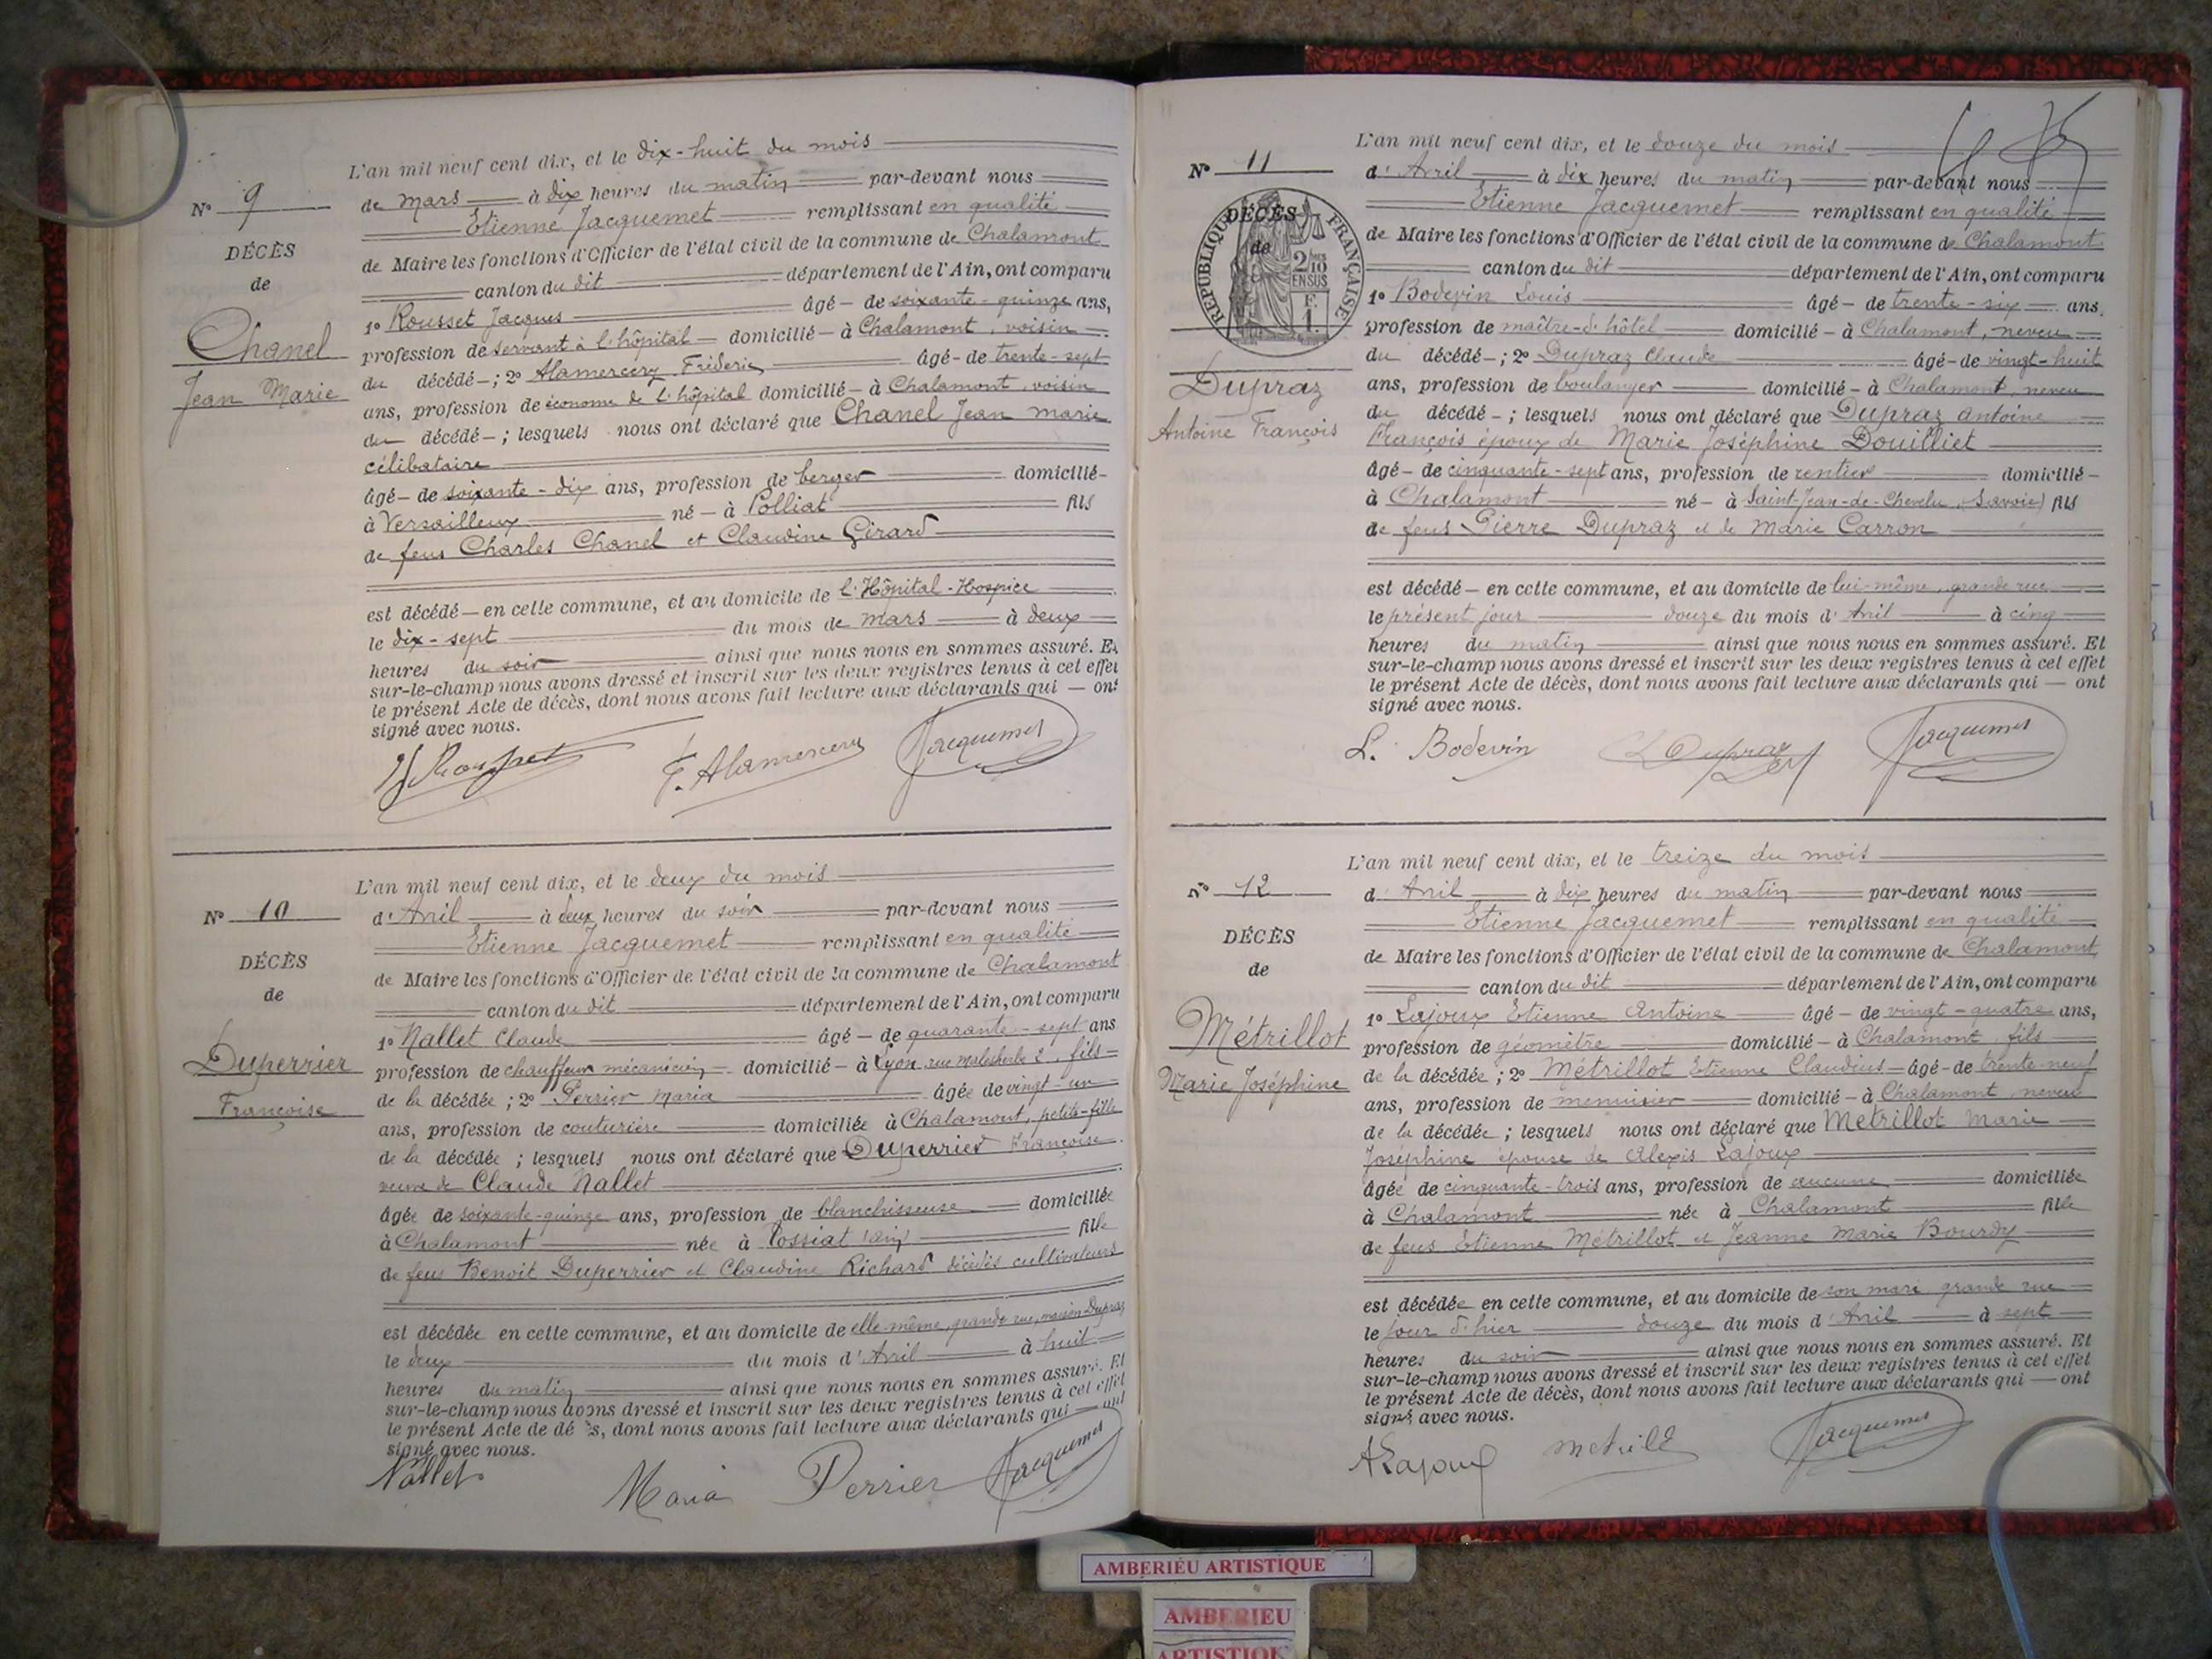 L'an mil neuf cent dix, et le dix-huit du mois
de Mars à dix heures du matin par-devant nous
Etienne Jacquemet remplissant en qualité
de Maire les fonctions d'Officier de l'état civil de la commune de Chalamont
canton du dit département de l'Ain, ont comparu
1º Rousset Jacques âgé de soixante-quinze ans,
profession de servant à l'hôpital domicilié à Chalamont, voisin
du décédé ; 2º Alamercery Fréderic âgé de trente-sept
ans, profession de économe de l'hôpital domicilié à Chalamont, voisin
du décédé ; lesquels nous ont déclaré que Chanel Jean marie
célibataire
âgé de soixante-dix ans, profession de berger domicilié
à Versailleux né à Polliat fils
de feus Charles Chanel et Claudine Girard
est décédé en cette commune, et au domicile de l'Hôpital-Hospice
le dix-sept du mois de Mars à deux
heures du soir ainsi que nous nous en sommes assuré. Et
sur-le-champ nous avons dressé et inscrit sur les deux registres tenus à cet effet
le présent Acte de décès, dont nous avons fait lecture aux déclarants qui ont
signé avec nous.
Nº 9
DÉCÈS
de
Chanel
Jean Marie
J. Rousset F. Alamercery Jacquemet
L'an mil neuf cent dix, et le deux du mois
d'Avril à deux heures du soir par-devant nous
Etienne Jacquemet remplissant en qualité
de Maire les fonctions d'Officier de l'état civil de la commune de Chalamont
canton du dit département de l'Ain, ont comparu
1º Nallet Claude âgé de quarante-sept ans
profession de chauffeur mécanicien domicilié à Lyon, rue malesherbe 2, fils
de la décédée ; 2º Perrier Maria âgée de vingt-un
ans, profession de couturière domiciliée à Chalamont, petite-fille
de la décédée ; lesquels nous ont déclaré que Duperrier Françoise
veuve de Claude Nallet
âgée de soixante-quinze ans, profession de blanchisseuse domiciliée
à Chalamont née à Tossiat (ain) fille
de feus Benoit Duperrier et Claudine Richard décédés cultivateurs
est décédée en cette commune, et au domicile de elle-même, grande rue, maison Dupraz
le deux du mois d'Avril à huit
heures du matin ainsi que nous nous en sommes assuré. Et
sur-le-champ nous avons dressé et inscrit sur les deux registres tenus à cet effet
le présent Acte de dé s, dont nous avons fait lecture aux déclarants qui ont
signé avec nous.
Nº 10
DÉCÈS
de
Duperrier
Françoise
Nallet Maria Perrier Jacquemet
L'an mil neuf cent dix, et le douze du mois
d'Avril à dix heures du matin par-devant nous
Etienne Jacquemet remplissant en qualité
de Maire les fonctions d'Officier de l'état civil de la commune de Chalamont
canton du dit département de l'Ain, ont comparu
1º Bodevin Louis âgé de trente-six ans,
profession de maître-d'hôtel domicilié à Chalamont, neveu
du décédé ; 2º Dupraz Claude âgé de vingt-huit
ans, profession de boulanger domicilié à Chalamont neveu
du décédé ; lesquels nous ont déclaré que Dupraz antoine
François époux de Marie Joséphine Douilliet
âgé de cinquante-sept ans, profession de rentier domicilié
à Chalamont né à Saint-Jean-de-Chevelu (Savoie) fils
de feus Pierre Dupraz et de Marie Carron
est décédé en cette commune, et au domicile de lui-même, grande rue
le présent jour douze du mois d'Avril à cinq
heures du matin ainsi que nous nous en sommes assuré. Et
sur-le-champ nous avons dressé et inscrit sur les deux registres tenus à cet effet
le présent Acte de décès, dont nous avons fait lecture aux déclarants qui ont
signé avec nous.
Nº 11
DÉCÈS
de
RÉPUBLIQUE FRANÇAISE
2/10 EN SUS
F. 1.
Dupraz
Antoine François
L. Bodevin C Dupraz Jacquemet
L'an mil neuf cent dix, et le treize du mois
d'Avril à dix heures du matin par-devant nous
Etienne Jacquemet remplissant en qualité
de Maire les fonctions d'Officier de l'état civil de la commune de Chalamont
canton du dit département de l'Ain, ont comparu
1º Lajoux Etienne Antoine âgé de vingt-quatre ans,
profession de géomètre domicilié à Chalamont fils
de la décédée ; 2º Métrillot Etienne Claudius âgé de trente-neuf
ans, profession de menuisier domicilié à Chalamont neveu
de la décédée ; lesquels nous ont déclaré que Métrillot Marie
Joséphine épouse de Alexis Lajoux
âgée de cinquante-trois ans, profession de aucune domiciliée
à Chalamont née à Chalamont fille
de feus Etienne Métrillot et Jeanne Marie Bourdy
est décédée en cette commune, et au domicile de son mari grande rue
le jour d'hier douze du mois d'Avril à sept
heures du soir ainsi que nous nous en sommes assuré. Et
sur-le-champ nous avons dressé et inscrit sur les deux registres tenus à cet effet
le présent Acte de décès, dont nous avons fait lecture aux déclarants qui ont
signé avec nous.
Nº 12
DÉCÈS
de
Métrillot
Marie Joséphine
A Lajoux Jacquemet
AMBERIEU ARTISTIQUE
AMBERIEU
ARTISTIQUE